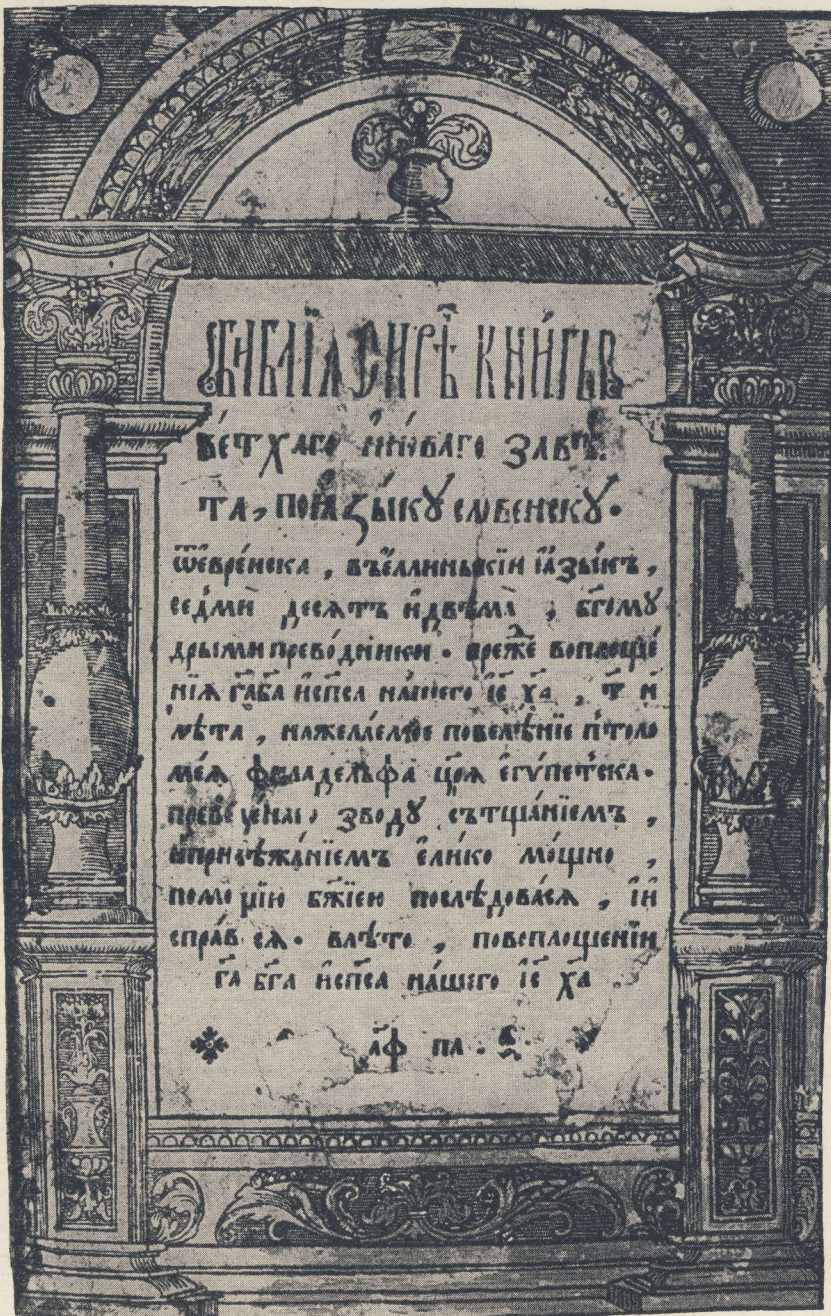 БИ́БЛІА СИРѢ́Ч КНИ́ГЫ
ВЕ́ТХАГО И҆ НО́ВАГО ЗАВѢ́
ТА, ПОꙖЗЫ́КꙊ СЛОВЕНСКꙊ.
Ѿ ЕВРЕ́ЙСКА, ВЪ Е҆́ЛЛИНЬСКІЙ ꙖЗЫ́КЪ,
СЕ́ДМИ ДЕСЯ́ТЪ И҆ ДВѢМА̀, БГ҃ОМꙊ́
ДРЫМИ ПРЕВО́ДНИКИ. ПРЕ́ЖЕ ВОПЛОЩЕ́
НІЯ ГА҃ БА҃ И҆ СП҃СА НА́ШЕГО ІС҃ ХА҃, Т҃ И҆
ЛѢ́ТА, НА ЖЕЛАЕ́МОЕ ПОВЕЛѢ́НІЕ ПТОЛО
МЕ́Я ФИЛАДЕ́ЛЬФА ЦР҃Я ЕГѴ́ПЕТСКА.
ПРЕВЕДЕНАГО ЗВОДꙊ СЪ ТЩА́НІЕМЪ,
И ПРИЛѢЖА́НІЕМЪ Е҆ЛИ́КО МО́ЩНО,
ПОМОЩІЮ БЖ҃ІЕЮ ПОСЛѢ́ДОВАСЯ, І҆ И҆
СПРА́ВИСЯ. В ЛѢ́ТО, ПО ВОПЛОЩЕ́НІИ
ГА҃ БГ҃А И҆ СП҃СА НА́ШЕГО ІС҃ ХА҃
҂АФ ПА.